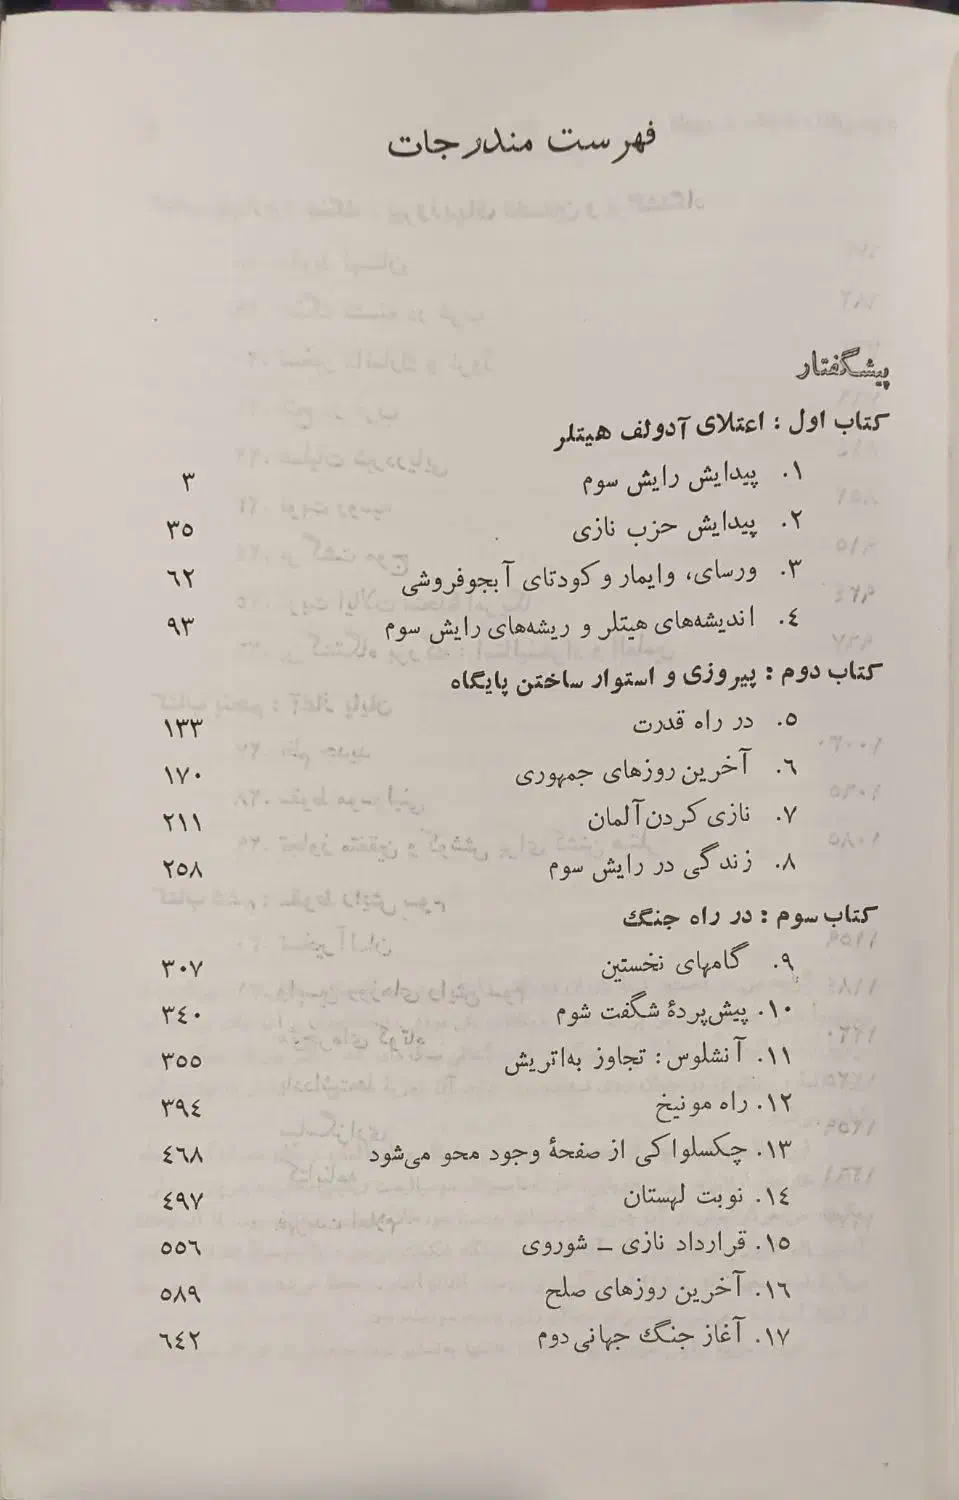 فهرست مندرجات
پیشگفتار
کتاب اول : اعتلای آدولف هیتلر
۱. پیدایش رایش سوم ۳
۲. پیدایش حزب نازی ۳۵
۳. ورسای، وایمار و کودتای آبجوفروشی ٦۲
٤. اندیشه‌های هیتلر و ریشه‌های رایش سوم ۹۳
کتاب دوم : پیروزی و استوار ساختن پایگاه
۵. در راه قدرت ۱۳۳
٦. آخرین روزهای جمهوری ۱۷۰
۷. نازی کردن آلمان ۲۱۱
۸. زندگی در رایش سوم ۲۵۸
کتاب سوم : در راه جنگ
۹. گامهای نخستین ۳۰۷
۱۰. پیش‌پردهٔ شگفت شوم ۳٤۰
۱۱. آنشلوس: تجاوز به‌اتریش ۳۵۵
۱۲. راه مونیخ ۳۹٤
۱۳. چکسلواکی از صفحهٔ وجود محو می‌شود ٤٦۸
۱٤. نوبت لهستان ٤۹۷
۱۵. قرارداد نازی – شوروی ۵۵٦
۱٦. آخرین روزهای صلح ۵۸۹
۱۷. آغاز جنگ جهانی دوم ٦٤۲